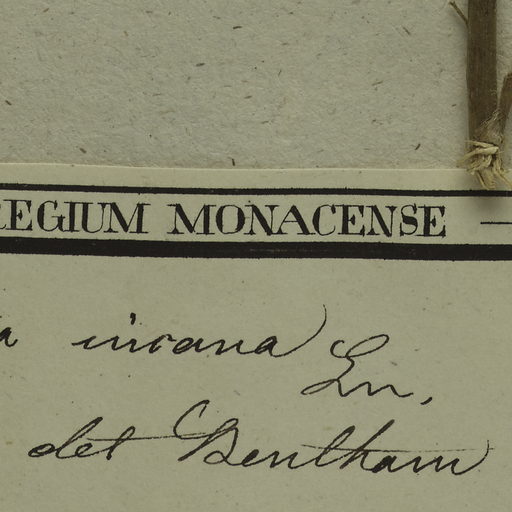 REGIUM MONACENSE —
a incana
Ln.
det Bentham